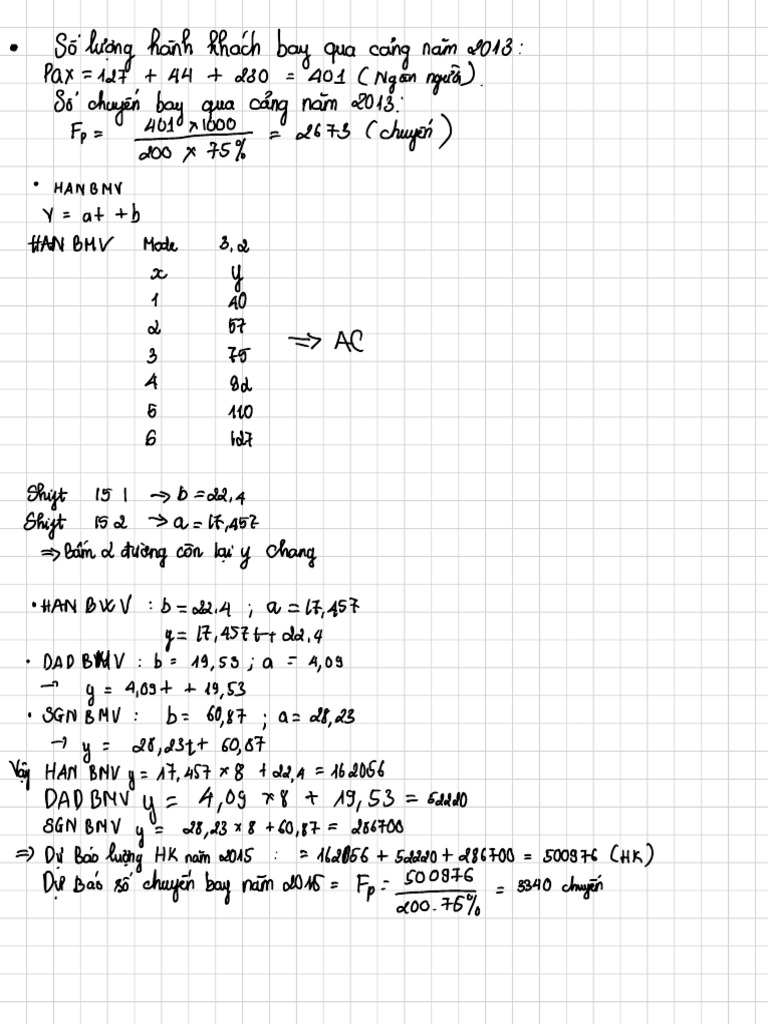 • Số lượng hành khách bay qua cảng năm 2013:
Pax = 127 + 44 + 230 = 401 (Ngàn người).
Số chuyến bay qua cảng năm 2013:
Fp = 401 x 1000 / 200 x 75% = 2673 (chuyến)
• HAN BMV
Y = at + b
HAN BMV Mode 3,2
x y
1 40
2 57
3 75
4 92
5 110
6 127
=> AC
Shift 15 1 -> b = 22,4
Shift 15 2 -> a = 17,457
=> Bấm 2 đường còn lại y chang
• HAN BMV : b = 22.4 ; a = 17,457
y = 17,457t + 22,4
• DAD BMV : b = 19,53 ; a = 4,09
-> y = 4,09t + 19,53
• SGN BMV : b = 60,87 ; a = 28,23
-> y = 28,23t + 60,87
Vậy HAN BMV y = 17,457 x 8 + 22,4 = 162056
DAD BMV y = 4,09 x 8 + 19,53 = 52220
SGN BMV y = 28,23 x 8 + 60,87 = 286700
=> Dự Báo lượng HK năm 2015 : = 162056 + 52220 + 286700 = 500976 (HK)
Dự Báo số chuyến bay năm 2015 = Fp = 500976 / 200.75% = 3340 chuyến